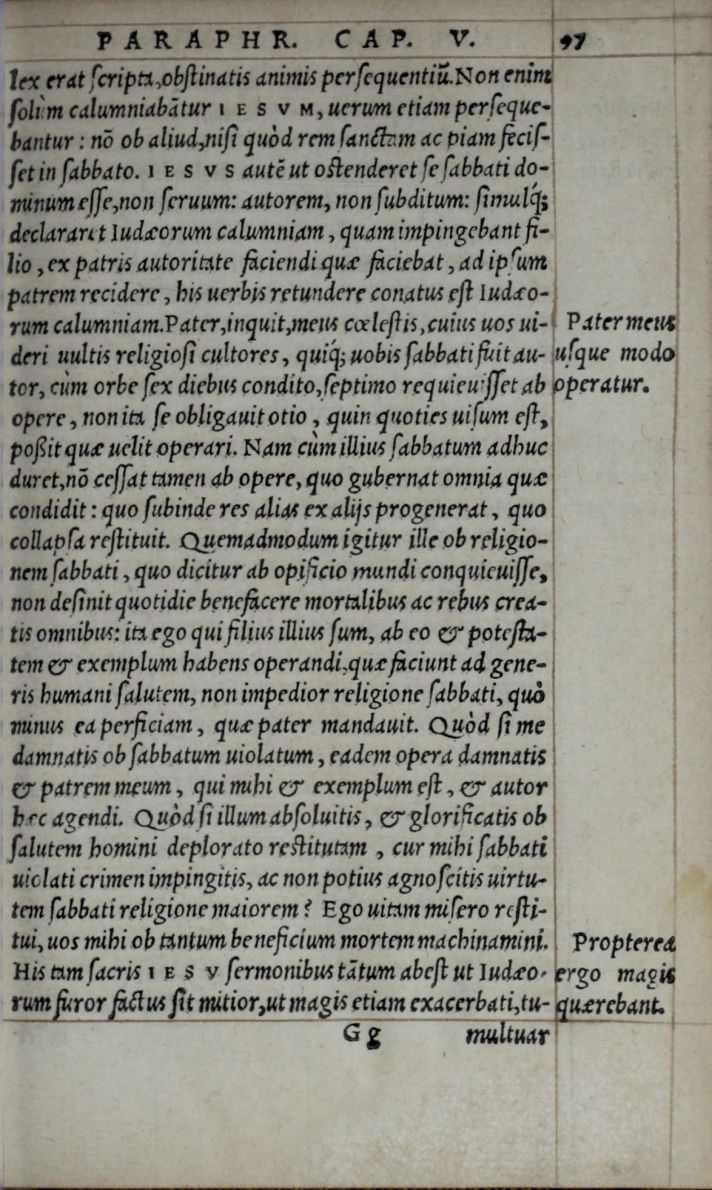 PARAPHR. CAP. V. 97
lex erat ſcripta, obſtinatis animis perſequentiũ. Non enim
ſolùm calumniabãtur IESVM, uerum etiam perſeque-
bantur: nõ ob aliud, niſi quòd rem ſanctam ac piam feciſ-
ſet in ſabbato. IESVS autẽ ut oſtenderet ſe ſabbati do-
minum eſſe, non ſeruum: autorem, non ſubditum: ſimulq́;
declararet Iudæorum calumniam, quam impingebant fi-
lio, ex patris autoritate faciendi quæ faciebat, ad ipſum
patrem recidere, his uerbis retundere conatus eſt Iudæo-
rum calumniam. Pater, inquit, meus cœleſtis, cuius uos ui-
deri uultis religioſi cultores, quiq́; uobis ſabbati fuit au-
tor, cùm orbe ſex diebus condito, ſeptimo requieuiſſet ab
opere, non ita ſe obligauit otio, quin quoties uiſum eſt,
poßit quæ uelit operari. Nam cùm illius ſabbatum adhuc
duret, nõ ceſſat tamen ab opere, quo gubernat omnia quæ
condidit: quo ſubinde res alias ex alijs progenerat, quo
collapſa reſtituit. Quemadmodum igitur ille ob religio-
nem ſabbati, quo dicitur ab opificio mundi conquieuiſſe,
non deſinit quotidie benefacere mortalibus ac rebus crea-
tis omnibus: ita ego qui filius illius ſum, ab eo & poteſta-
tem & exemplum habens operandi, quæ faciunt ad gene-
ris humani ſalutem, non impedior religione ſabbati, quò
minus ea perficiam, quæ pater mandauit. Quòd ſi me
damnatis ob ſabbatum uiolatum, eadem opera damnatis
& patrem meum, qui mihi & exemplum eſt, & autor
hæc agendi. Quòd ſi illum abſoluitis, & glorificatis ob
ſalutem homini deplorato reſtitutam, cur mihi ſabbati
uiolati crimen impingitis, ac non potius agnoſcitis uirtu-
tem ſabbati religione maiorem? Ego uitam miſero reſti-
tui, uos mihi ob tantum beneficium mortem machinamini.
His tam ſacris IESV ſermonibus tãtum abeſt ut Iudæo-
rum furor factus ſit mitior, ut magis etiam exacerbati, tu-
Gg multuar
Pater meus
uſque modo
operatur.
Propterea
ergo magis
quærebant.